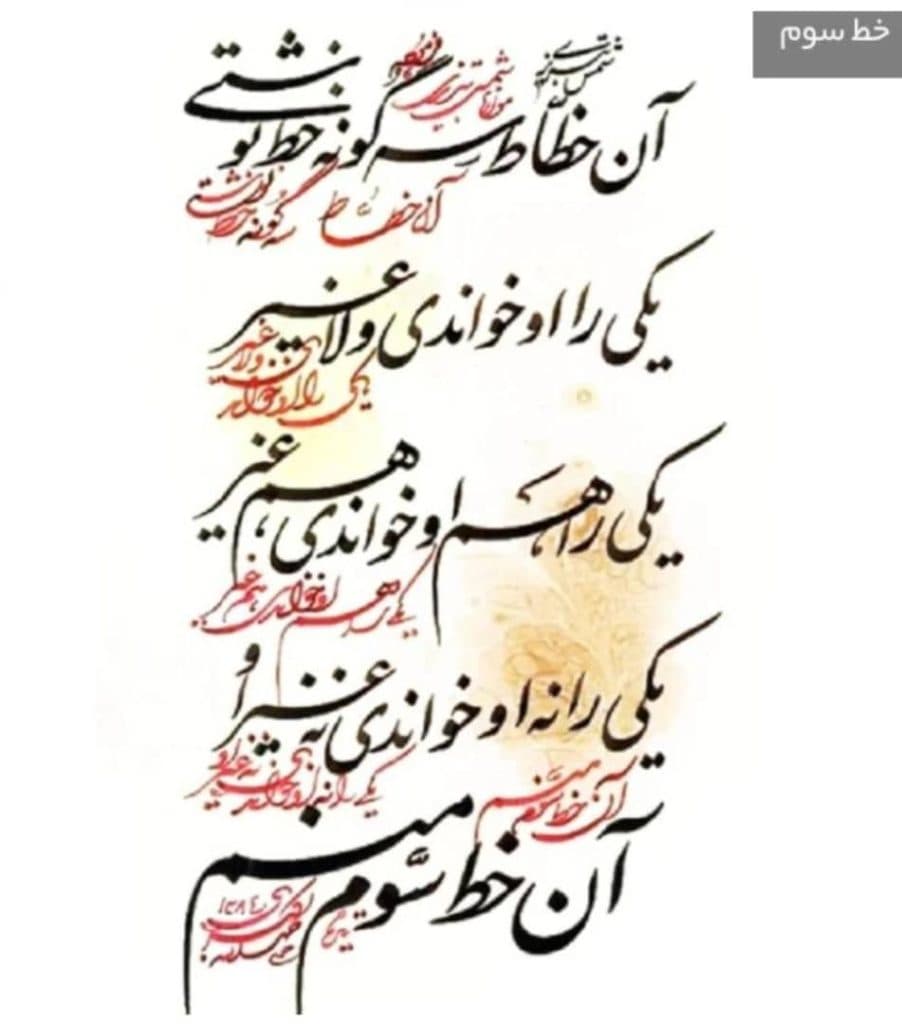 خط سوم
شمس تبریزی
آن خطاط سه گونه خط نوشتی
آن خطاط سه گونه خط نوشتی
یکی را او خواندی و لا غیر
یکی را او خواندی و لا غیر
یکی را هم او خواندی، هم غیر
یکی را هم او خواندی هم غیر
یکی را نه او خواندی نه غیر او
یکی را نه او خواندی نه غیر او
آن خط سوم منم
آن خط سوّم منم